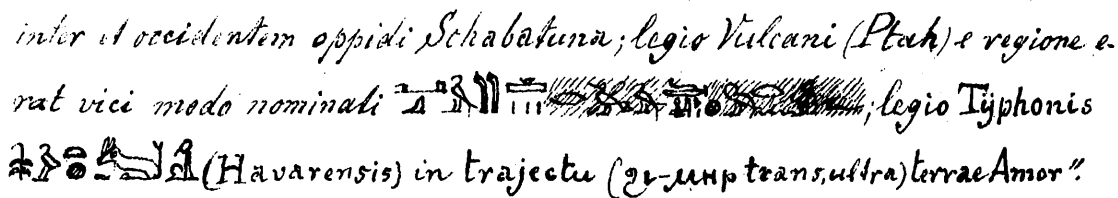 inter et occidentem oppidi Schabatuna; legio Vulcani (Ptah) e regione e-
rat vici modo nominati ; legio Tÿphonis
(Havarensis) in trajectu (ϩⲓ-ⲙⲏⲣ trans, ultra) terrae Amor".